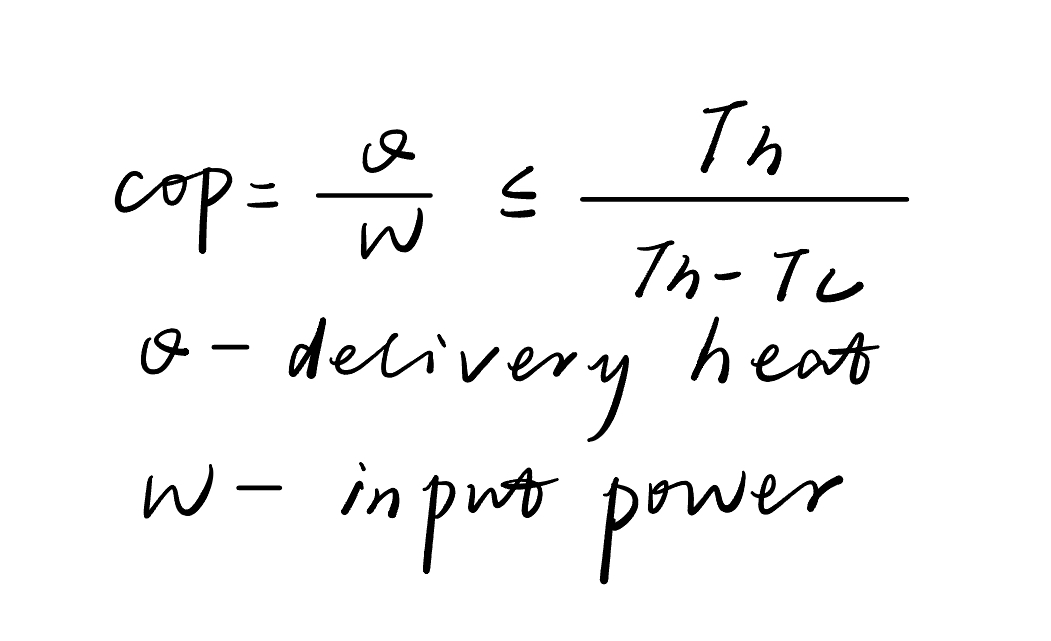 cop = Q/W ≤ Th/(Th - Tc)
Q - delivery heat
W - input power